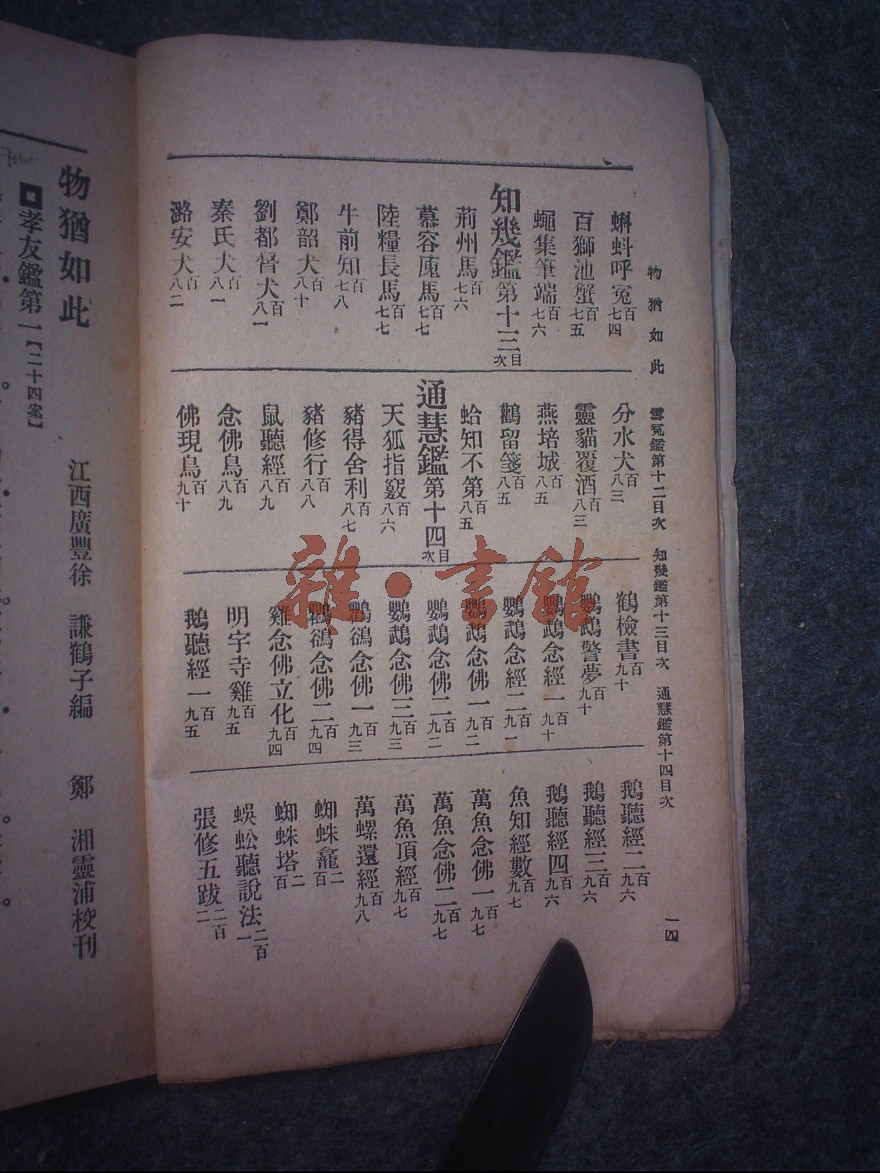 物猶如此 雪冤鑑第十二目次 知幾鑑第十三目次 通慧鑑第十四目次 一四
蝌蚪呼冤百七四
百獅池蟹百七五
蠅集筆端百七六
知幾鑑第十三目次
荊州馬百七六
慕容廆馬百七七
陸糧長馬百七七
牛前知百七八
鄭韶犬百八十
劉都督犬百八一
秦氏犬百八一
潞安犬百八二
分水犬百八三
靈貓覆酒百八三
燕培城百八五
鸛留箋百八五
蛤知不第百八五
通慧鑑第十四目次
天狐指竅百八六
豬得舍利百八七
豬修行百八八
鼠聽經百八九
念佛鳥百八九
佛現鳥百九十
鶴檢書百九十
鸚鵡警夢百九十
鸚鵡念經一百九十
鸚鵡念經二百九一
鸚鵡念佛一百九二
鸚鵡念佛二百九二
鸚鵡念佛三百九三
鸜鵒念佛一百九三
鸜鵒念佛二百九四
雞念佛立化百九四
明宇寺雞百九五
鵝聽經一百九五
鵝聽經二百九六
鵝聽經三百九六
鵝聽經四百九六
魚知經數百九七
萬魚念佛一百九七
萬魚念佛二百九七
萬魚頂經百九七
萬螺還經百九八
蜘蛛龕二百
蜘蛛塔二百
蜈蚣聽說法二百一
張修五跋二百二
物猶如此
江西廣豐徐 謙鶴子編 鄭 湘靈浦校刊
孝友鑑第一【二十四案】
雜·書館